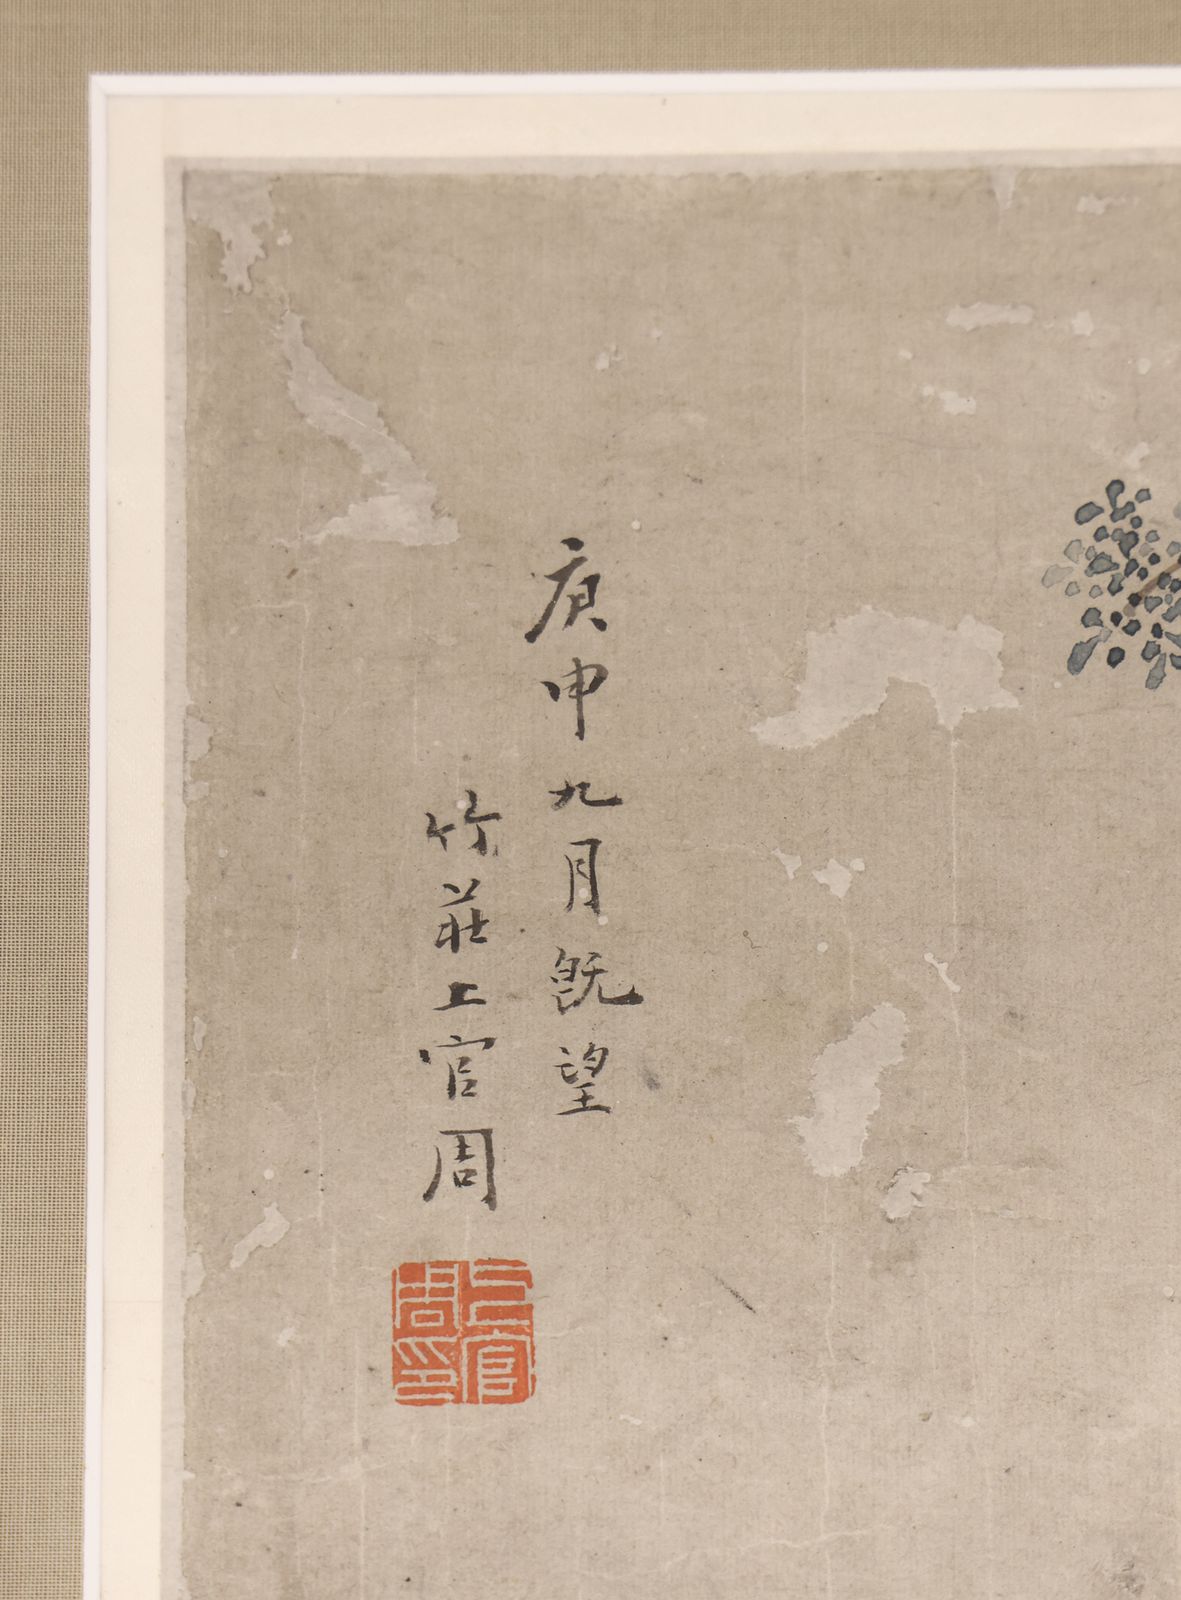 庚申九月既望
竹莊上官周
上官周印